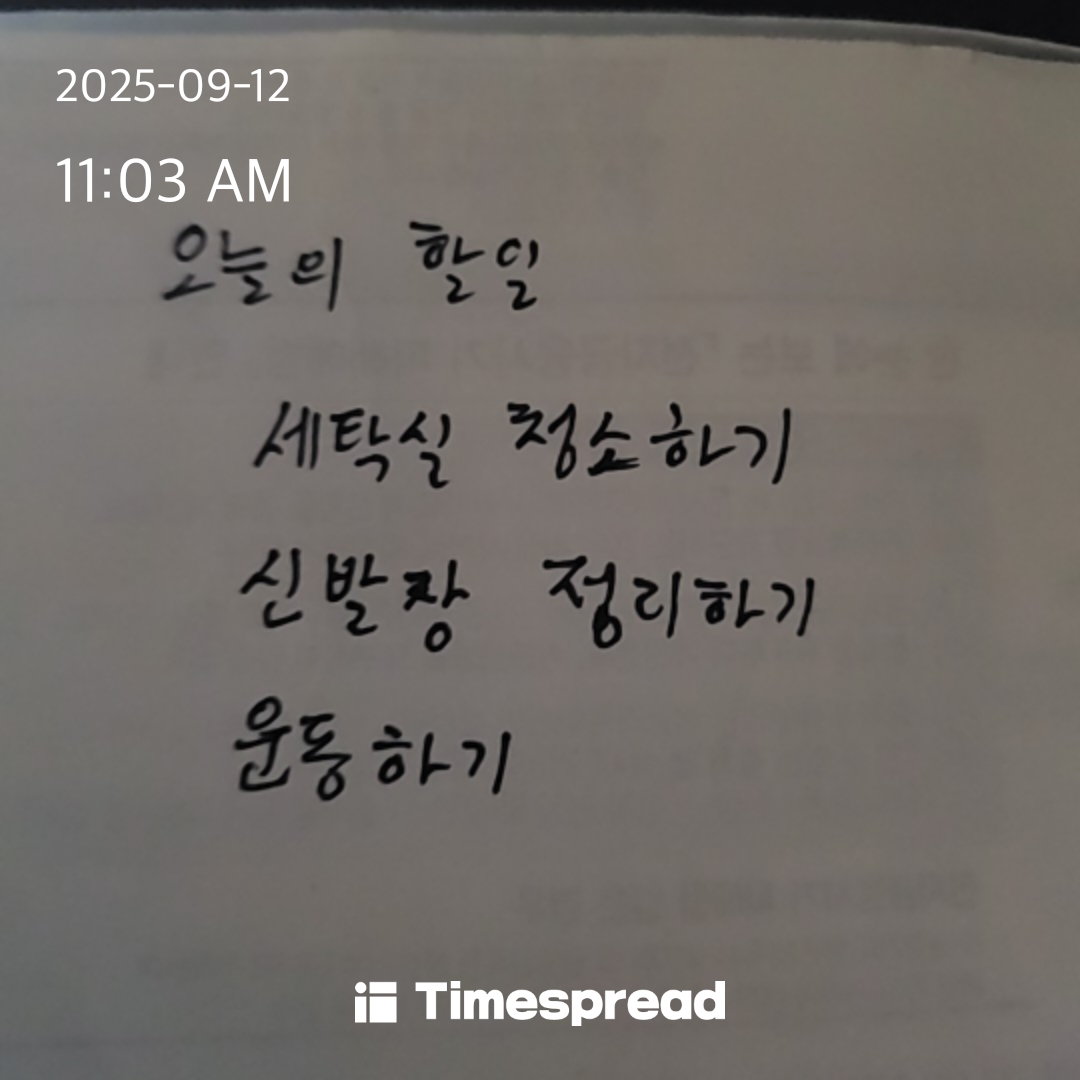 2025-09-12
11:03 AM
오늘의 할일
세탁실 청소하기
신발장 정리하기
운동하기
Timespread